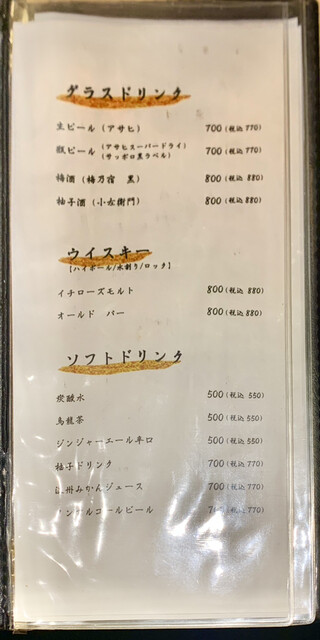 グラスドリンク
生ビール (アサヒ) 700 (税込 770)
瓶ビール (アサヒスーパードライ) 700 (税込 770)
(サッポロ黒ラベル)
梅酒 (梅乃宿 黒) 800 (税込 880)
柚子酒 (小左衛門) 800 (税込 880)
ウイスキー
【ハイボール/水割り/ロック】
イチローズモルト 800 (税込 880)
オールド パー 800 (税込 880)
ソフトドリンク
炭酸水 500 (税込 550)
烏龍茶 500 (税込 550)
ジンジャーエール辛口 500 (税込 550)
柚子ドリンク 700 (税込 770)
州みかんジュース 700 (税込 770)
ノンアルコールビール 700 (税込 770)